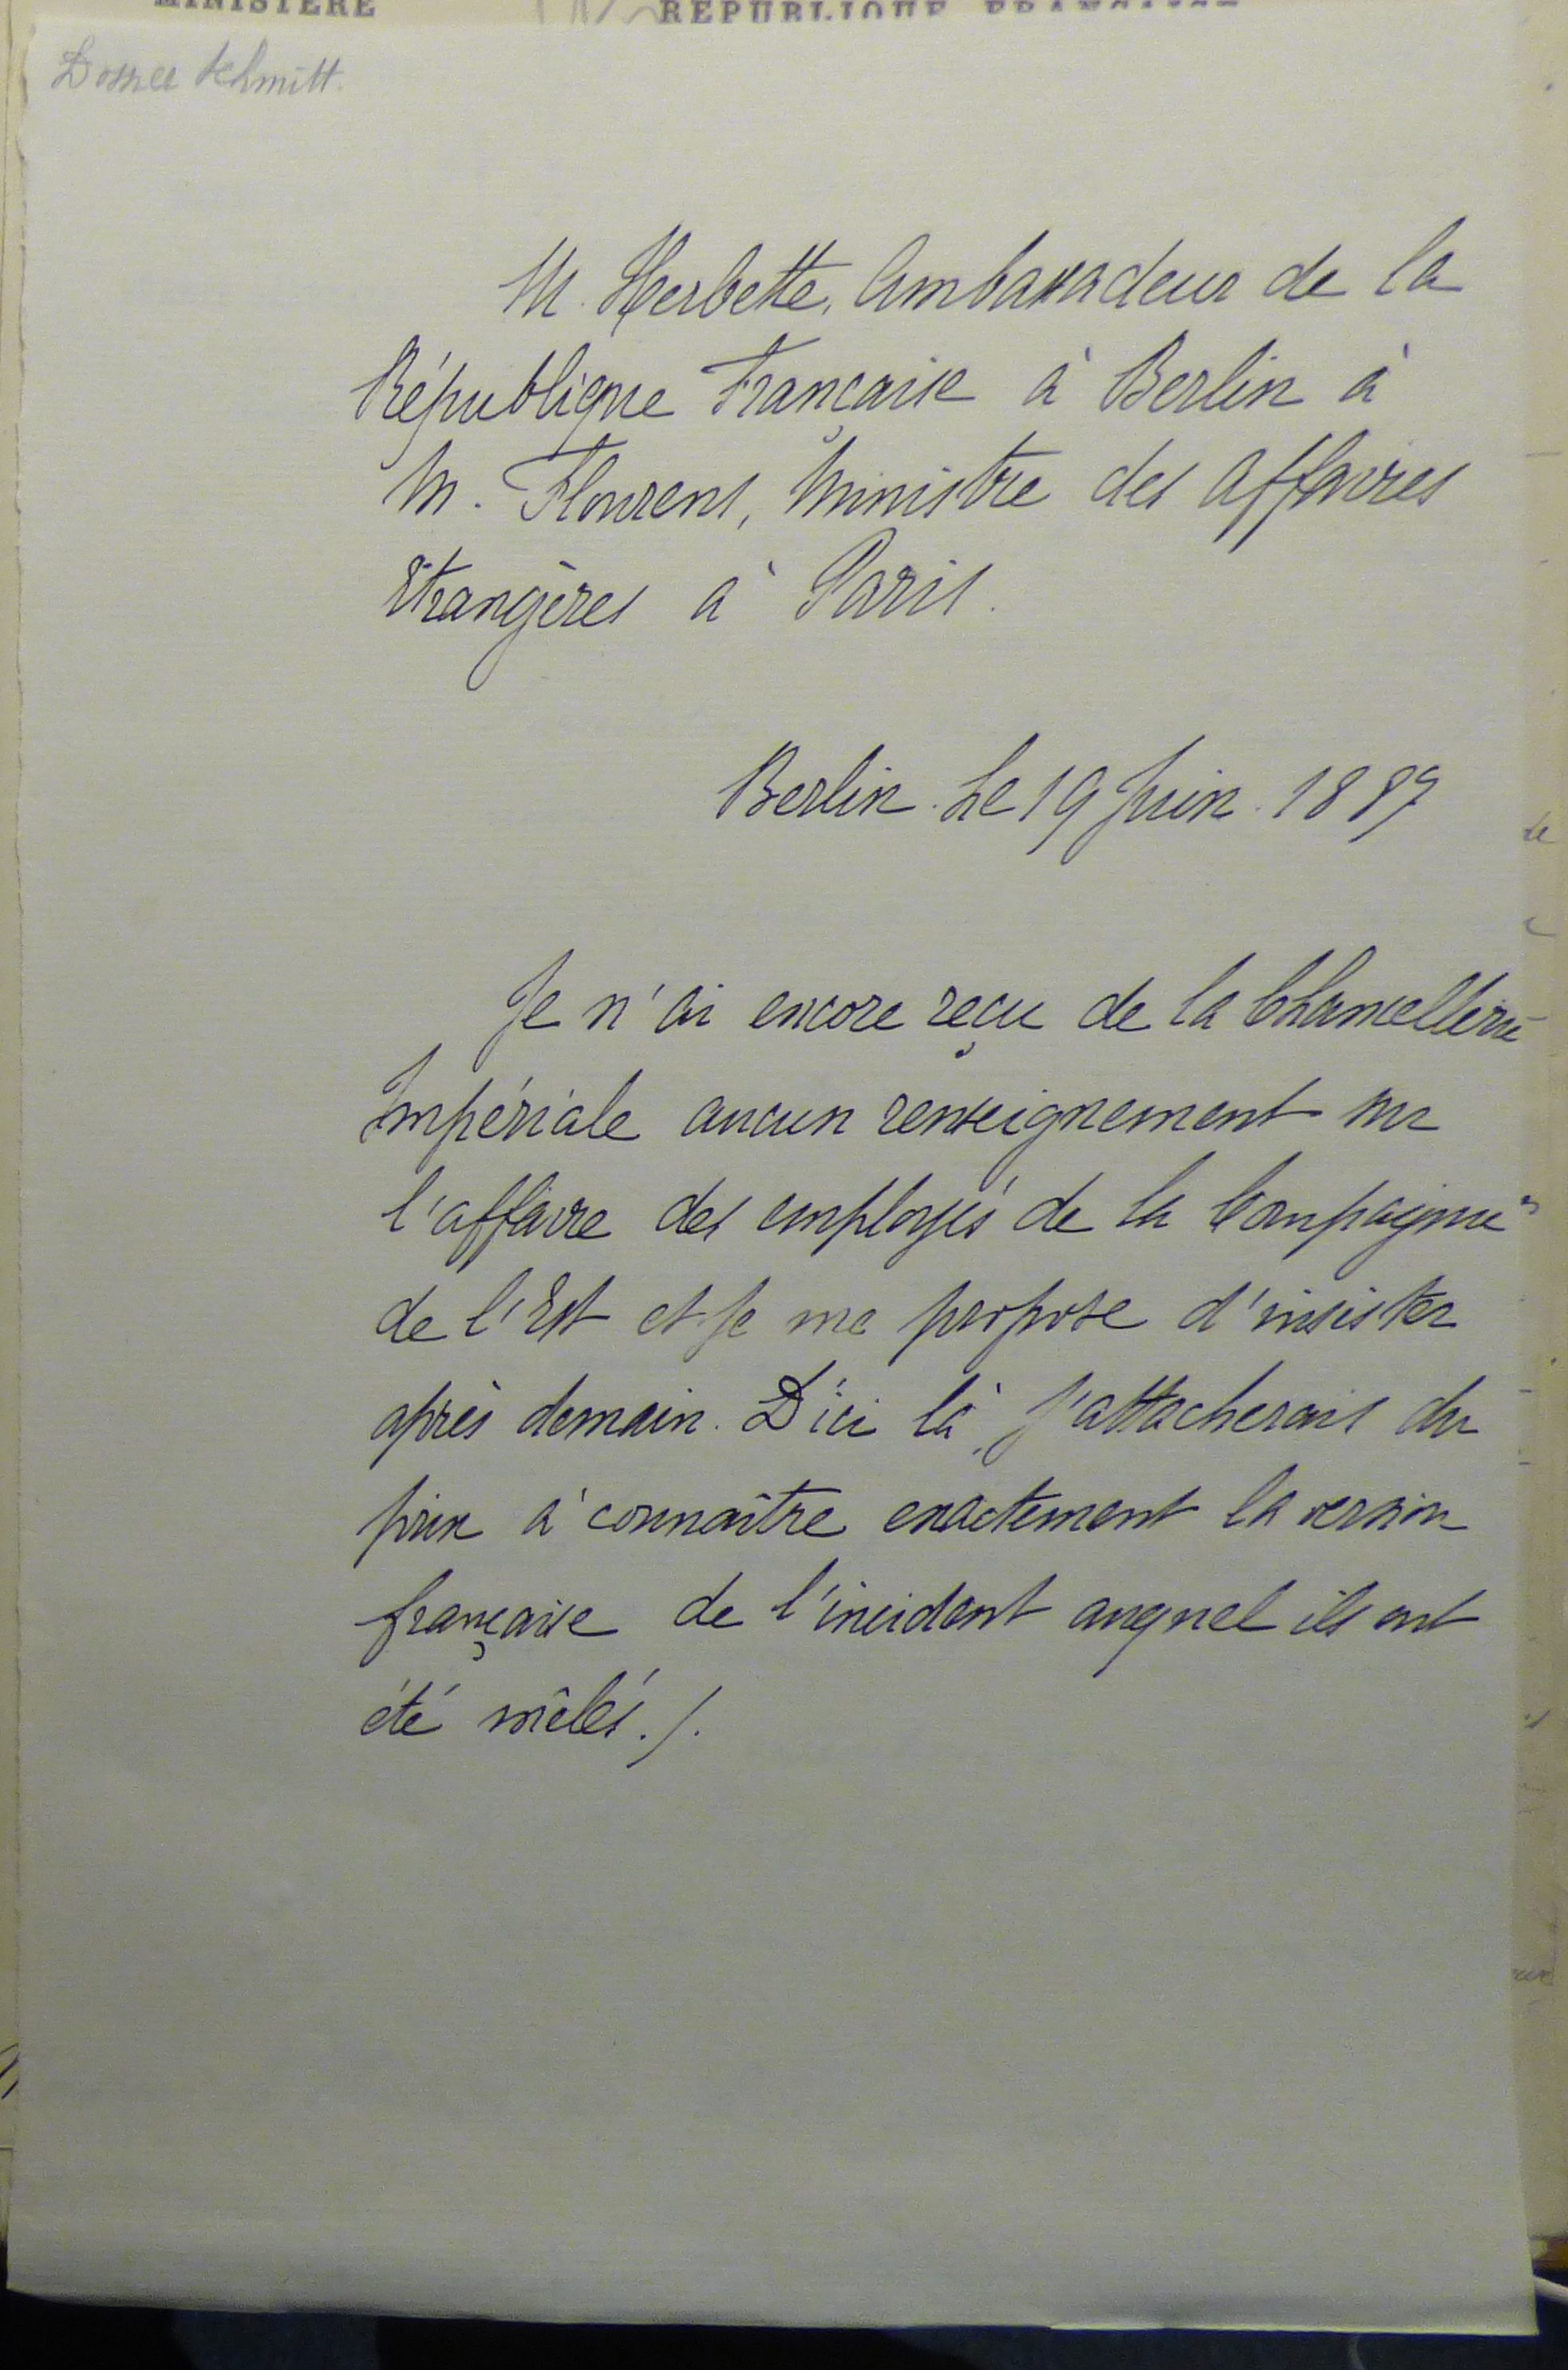 MINISTÈRE RÉPUBLIQUE FRANÇAISE
Dossier Schmitt.
M. Herbette, Ambassadeur de la
République Française à Berlin à
M. Flourens, Ministre des Affaires
Etrangères à Paris.
Berlin. Le 19 Juin. 1887
Je n'ai encore reçu de la Chancellerie
Impériale aucun renseignement sur
l'affaire des employés de la Compagnie
de l'Est et je me propose d'insister
après demain. D'ici là, j'attacherais du
prix à connaître exactement la version
française de l'incident auquel ils ont
été mêlés./.